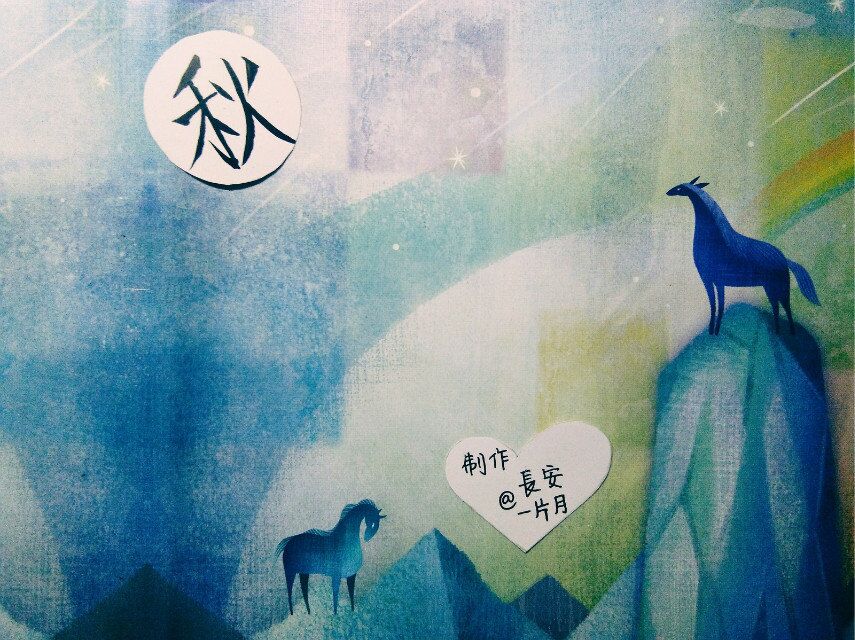 秋
制作
@長安
一片月